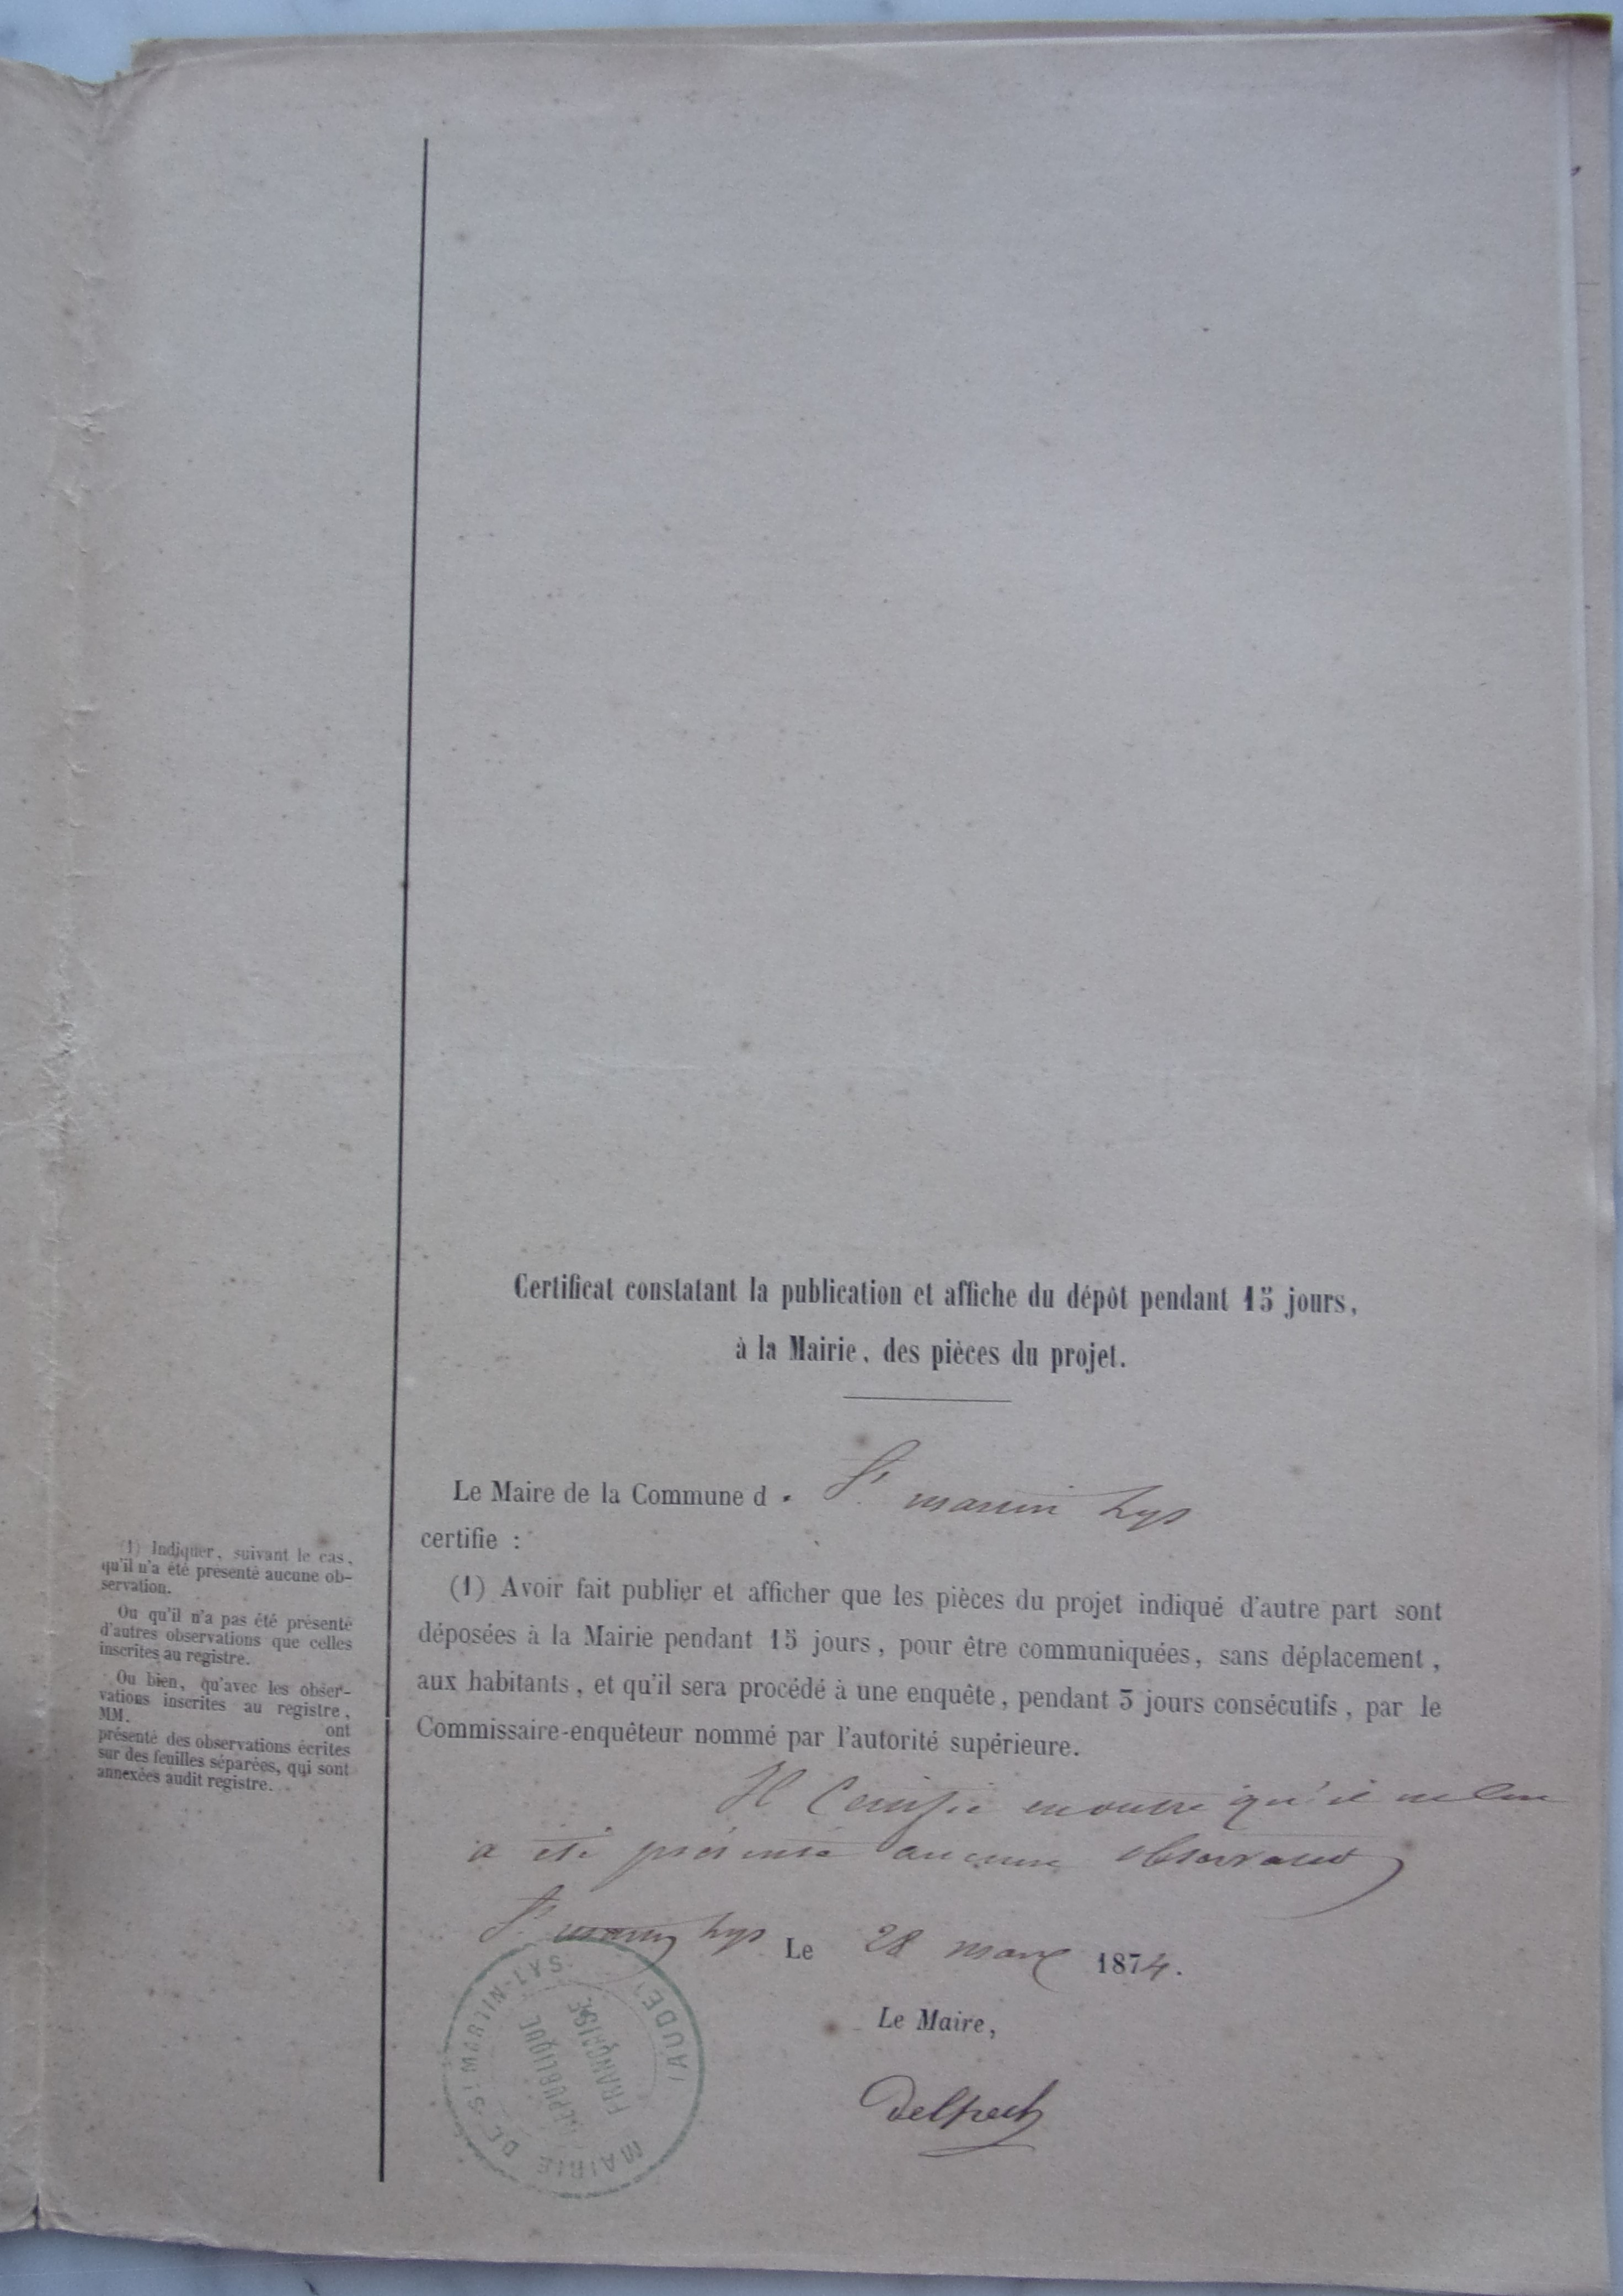 Certificat constatant la publication et affiche du dépôt pendant 15 jours,
à la Mairie, des pièces du projet.
Le Maire de la Commune d. St. martin Lys
certifie :
(1) Avoir fait publier et afficher que les pièces du projet indiqué d'autre part sont
déposées à la Mairie pendant 15 jours, pour être communiquées, sans déplacement,
aux habitants, et qu'il sera procédé à une enquête, pendant 3 jours consécutifs, par le
Commissaire-enquêteur nommé par l'autorité supérieure.
Il Certifie en outre qu'il ne lui
a été présenté aucune
St. martin Lys Le 28 mars 1874.
Le Maire,
Delpech
(1) Indiquer, suivant le cas,
qu'il n'a été présenté aucune ob-
servation.
Ou qu'il n'a pas été présenté
d'autres observations que celles
inscrites au registre.
Ou bien, qu'avec les obser-
vations inscrites au registre,
MM. ont
présenté des observations écrites
sur des feuilles séparées, qui sont
annexées audit registre.
MAIRIE DE St MARTIN-LYS
(AUDE)
RÉPUBLIQUE
FRANÇAISE